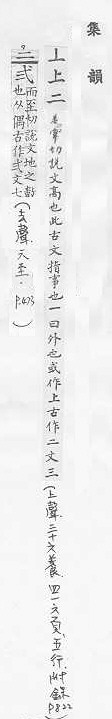 集韻
丄上二 是掌切說文高也此古文指事也一曰外也或作上古作二文三(上聲、三十六養、四一六頁、五行、附錄P822)
二弍 而至切說文地之數也从偶古作弍文七(去聲、六至、P473)